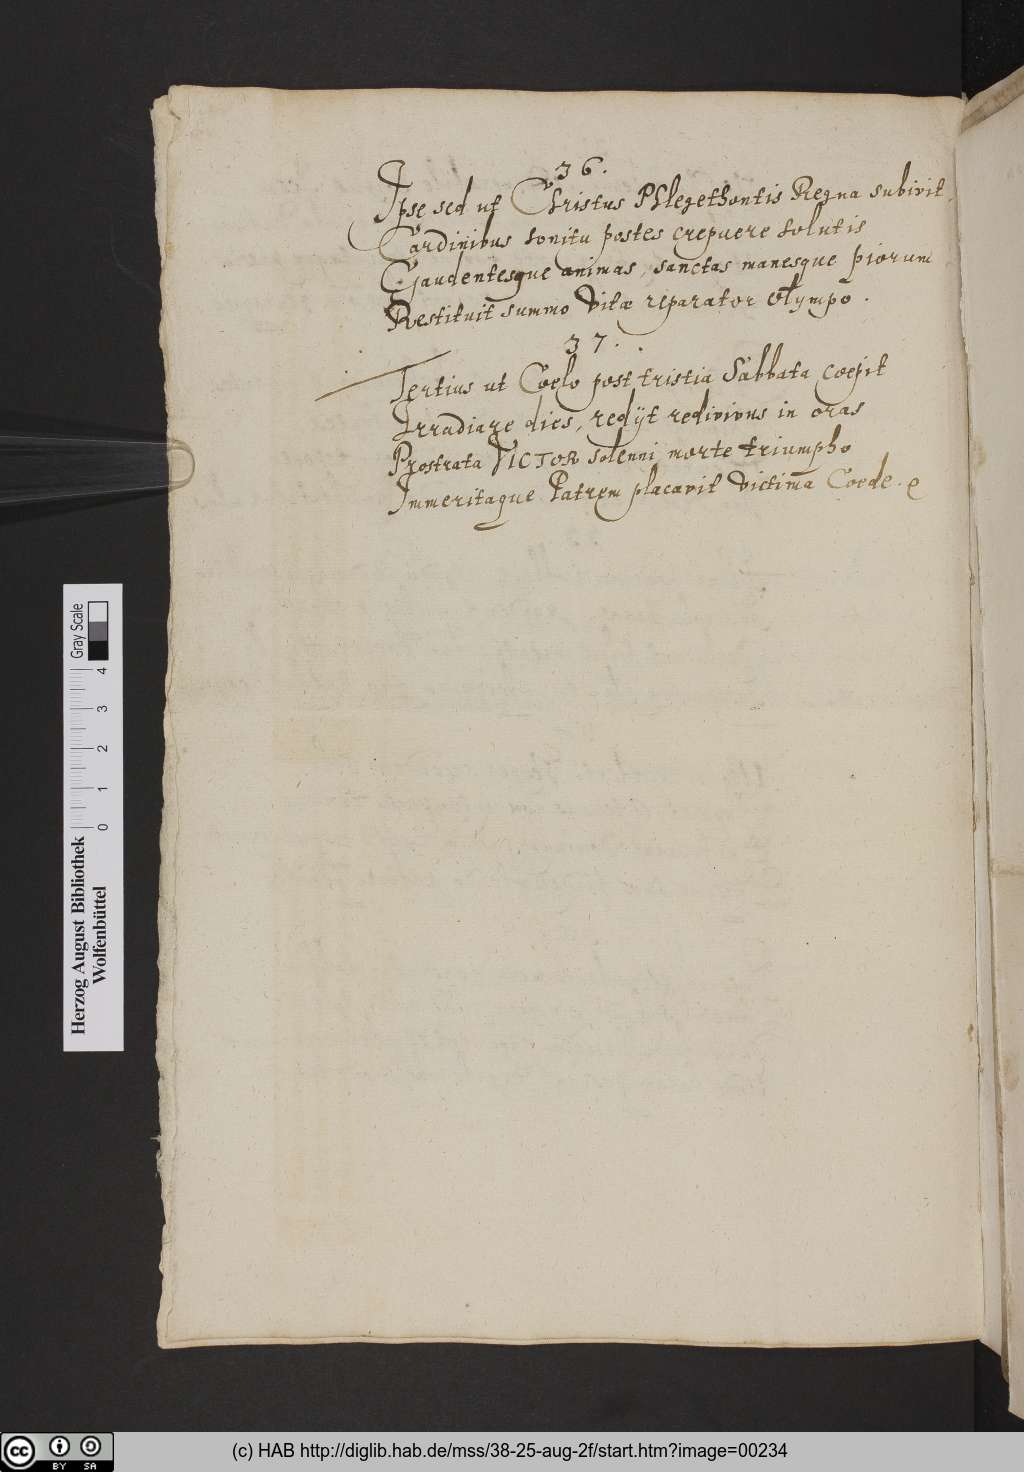 36.
Ipse sed ut Christus Phlegethontis Regna subivit,
Cardinibus sonitu postes crepuere solutis
Gaudentesque animas, sanctas manesque piorum
Restituit summo Vitæ reparator Olympo.
37.
Tertius ut Coelo post tristia Sabbata coepit
Irradiare dies, redijt redivivus in oras
Prostrata VICTOR solenni morte triumpho
Immeritaque Patrem placavit victima Coede. e
Herzog August Bibliothek
Wolfenbüttel
0 1 2 3 4
Gray Scale
cc BY SA
(c) HAB http://diglib.hab.de/mss/38-25-aug-2f/start.htm?image=00234